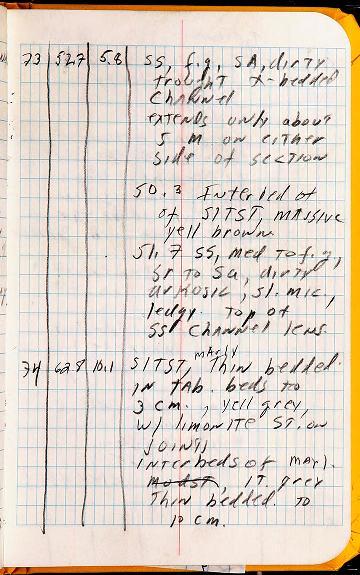 73 52.7 5.8 SS, f.g, SA, dirty
trought x-bedded
Channel
extends only about
5 M on either
side of section
50.3 Interbed of
of SITST, MASSIVE
yell brown
51.7 SS, med to f.g,
Sr to Sa, dirty
arkosic, sl. mic,
ledgy. Top of
SS Channel lens.
74 62.8 10.1 SITST, marly Thin bedded.
IN TAb. beds to
3 cm., yell grey,
w/ limonite ST. on
JOINTS
INTERBEDS of MARl.
mudst, lT. grey
Thin bedded. TO
10 cm.